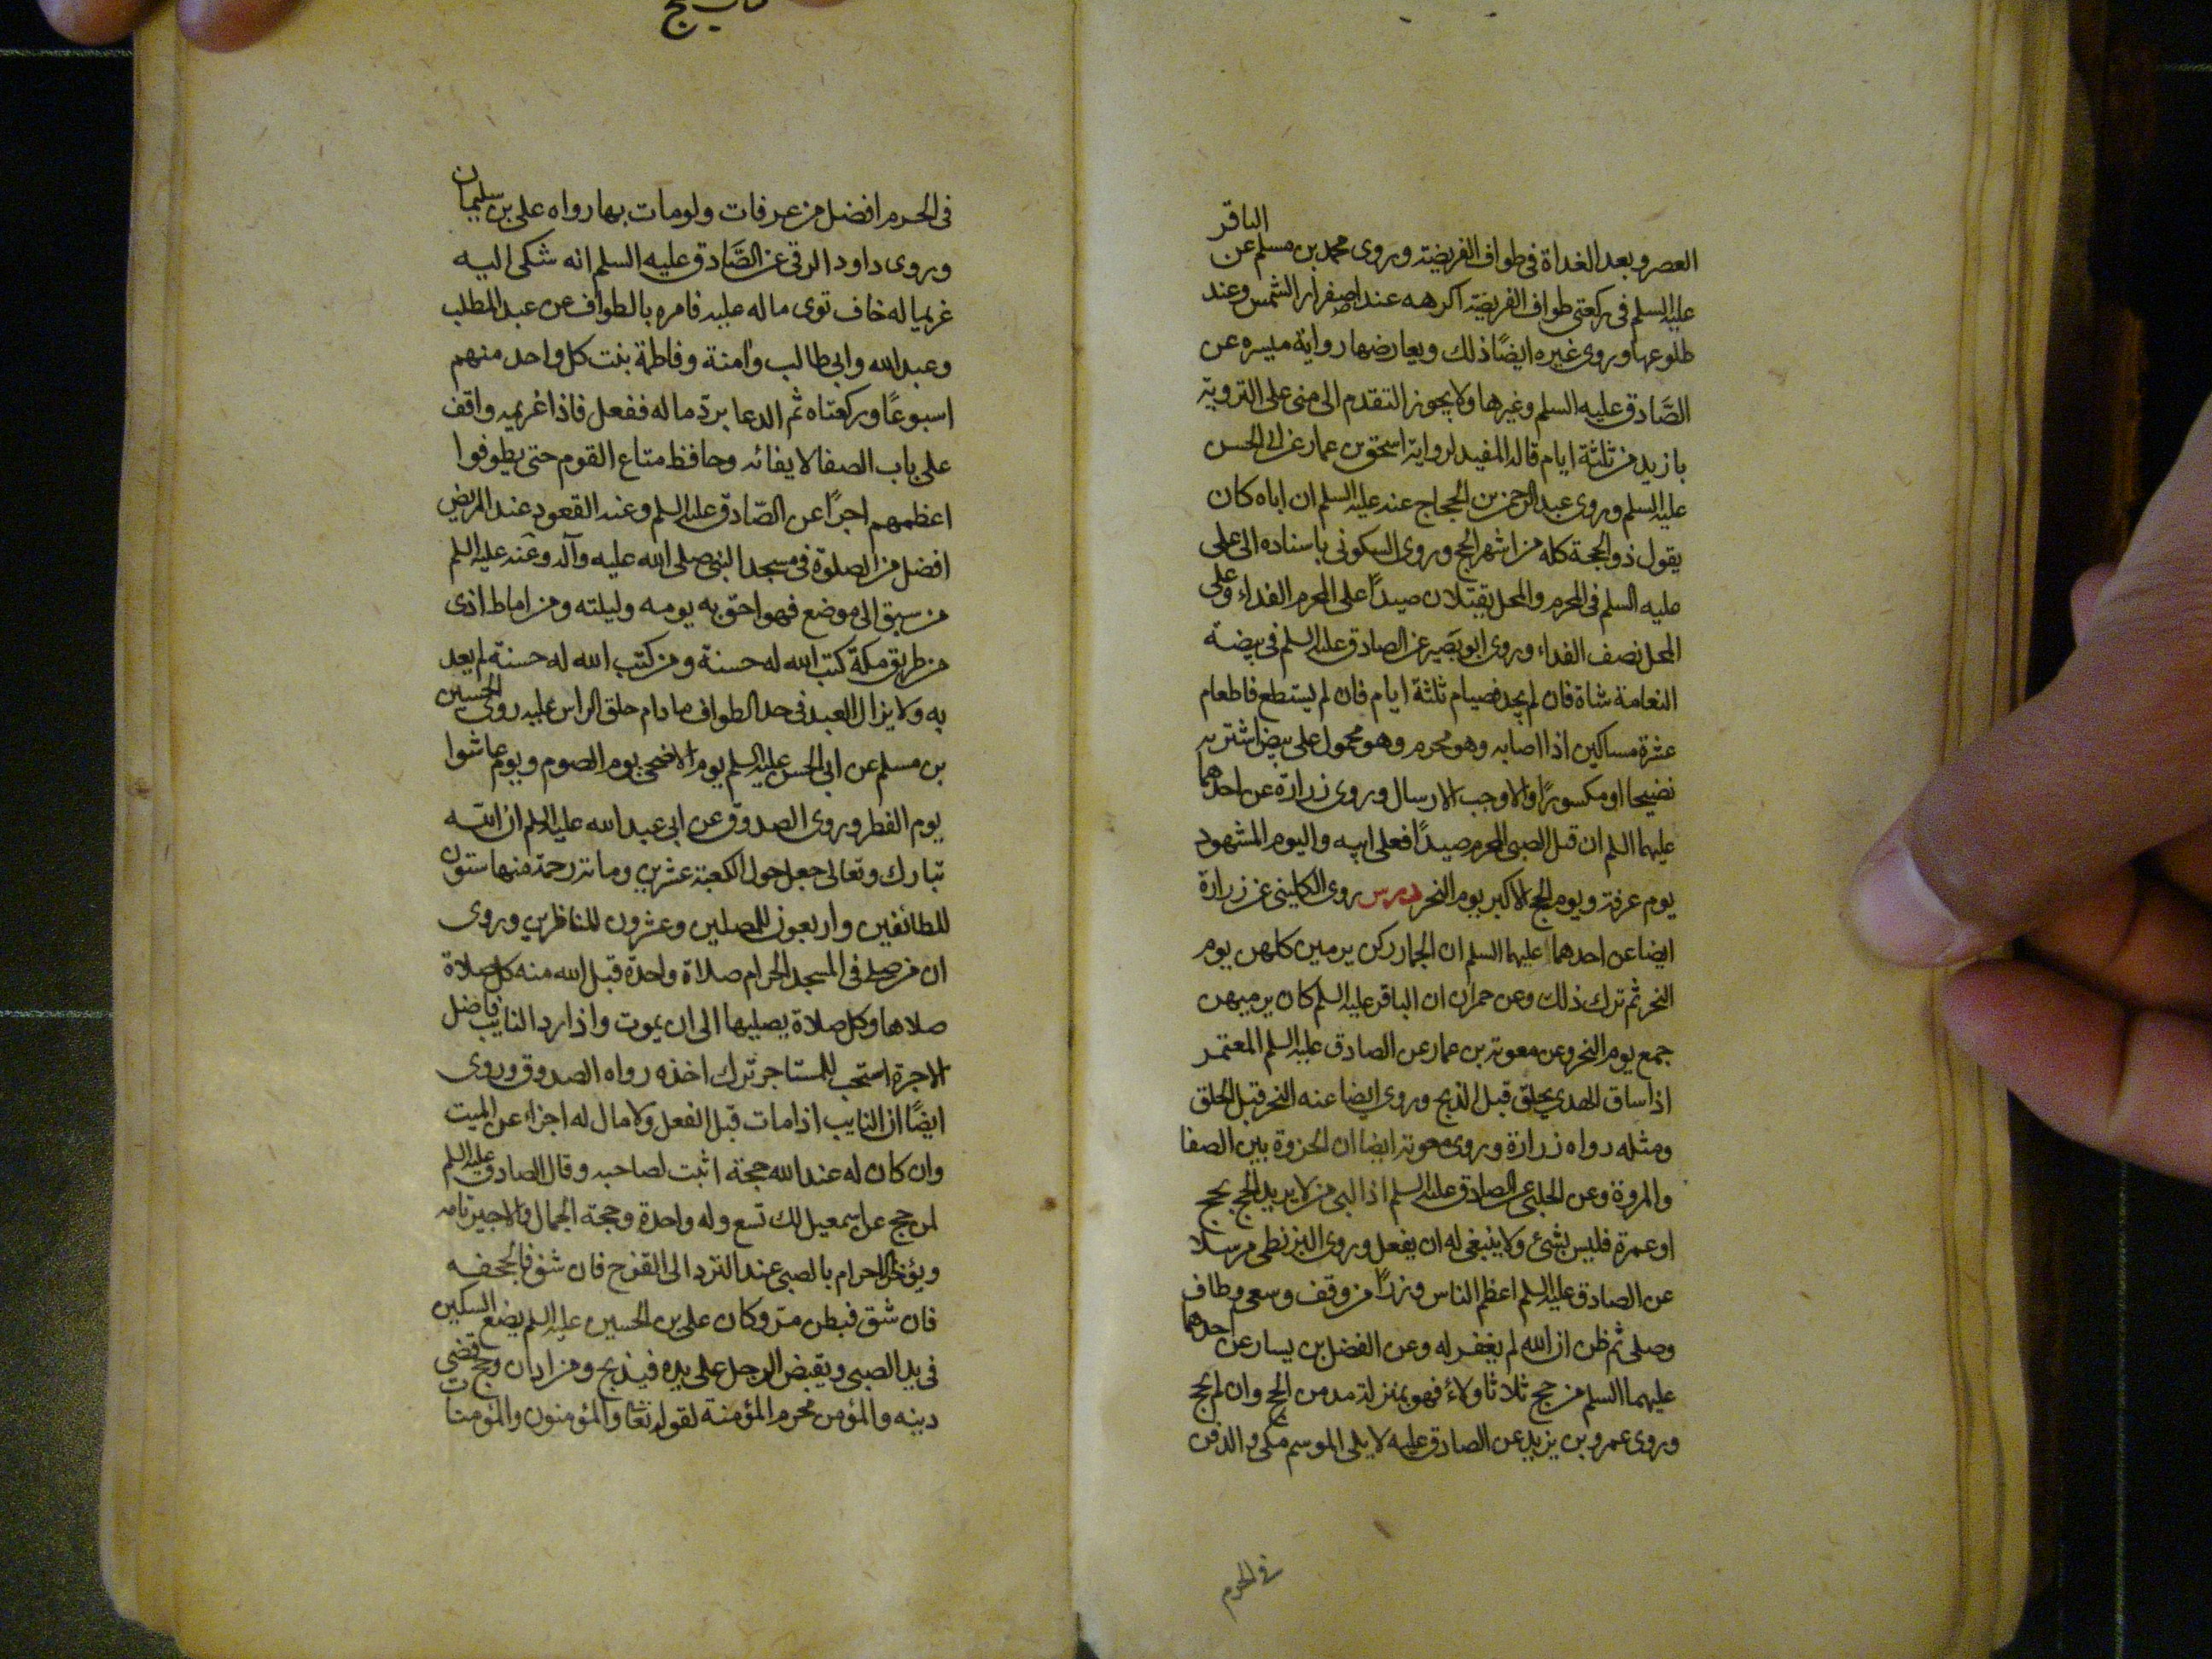 العصر وبعد الغداة في طواف الفريضة وروى محمد بن مسلم عن الباقر
عليه السلم في ركعتي طواف الفريضة اكرهه عند اصفرار الشمس وعند
طلوعها وروى غيره ايضًا ذلك ويعارضها رواية ميسره عن
الصَّادق عليه السلم وغيرها ولا يجوز التقدم الى منى على التروية
بازيد من ثلثة ايام قاله المفيد لرواية اسحق بن عمار عن ابي الحسن
عليه السلم وروى عبد الرحمن بن الحجاج عنه عليه السلم ان اباه كان
يقول ذو الحجة كله من اشهر الحج وروى السكوني باسناده الى علي
عليه السلم في المحرم والمحل يقتلان صيدًا على المحرم الفداء وعلى
المحل نصف الفداء وروى ابو بصير عن الصادق عليه السلم في بيضة
النعامة شاة فان لم يجد فصيام ثلثة ايام فان لم يستطع فاطعام
عشرة مساكين اذا اصابه وهو محرم وهو محمول على بيض اشتريه
نضيجا او مكسورًا والا وجب الارسال وروى زرارة عن احدهما
عليهما السلم ان قتل الصبي المحرم صيدًا فعلى ابيه واليوم المشهود
يوم عرفة ويوم الحج الاكبر يوم النحر درس روى الكليني عن زرارة
ايضا عن احدهما عليهما السلم ان الجمار ركن يرمين كلهن يوم
النحر ثم ترك ذلك وعن حمران ان الباقر عليه السلم كان يرميهن
جمع يوم النحر وعن معوية بن عمار عن الصادق عليه السلم المعتمر
اذا ساق الهدي يحلق قبل الذبح وروى ايضا عنه النحر قبل الحلق
ومثله رواه زرارة وروى معوية ايضا ان الحزورة بين الصفا
والمروة وعن الحلبي عن الصادق عليه السلم اذا لبى من لا يريد الحج بحج
او عمرة فليس بشئ ولا ينبغي له ان يفعل وروى البزنطي مرسلا
عن الصادق عليه السلم اعظم الناس وزرًا من وقف وسعى وطاف
وصلى ثم ظن ان الله لم يغفر له وعن الفضل بن يسار عن احدهما
عليهما السلم من حج ثلاثا ولاءً فهو بمنزلة مدمن الحج وان لم يحج
وروى عمرو بن يزيد عن الصادق عليه لا يلي الموسم مكي والدفن
في الحرم
في الحرم افضل من عرفات ولو مات بها رواه علي بن سليمان
وروى داود الرقي عن الصَّادق عليه السلم انه شكى اليه
غريما له خاف توى ماله عليه فامره بالطواف عن عبد المطلب
وعبد الله وابي طالب وامنة وفاطمة بنت كل واحد منهم
اسبوعًا وركعتاه ثم الدعا برد ماله ففعل فاذا غريمه واقف
على باب الصفا لايفائه وحافظ متاع القوم حتى يطوفوا
اعظمهم اجرًا عن الصّادق عليه السلم وعنه القعود عند المريض
افضل من الصلوة في مسجد النبي صلى الله عليه وآله وعنه عليه السلم
من سبق الى موضع فهو احق به يومه وليلته ومن اماط اذى
من طريق مكة كتب الله له حسنة ومن كتب الله له حسنة لم يعد
به ولا يزال العبد في حد الطواف ما دام حلق الراس عليه روى الحسين
بن مسلم عن ابي الحسن عليه السلم يوم الاضحى يوم الصوم ويوم عاشوا
يوم الفطر وروى الصدوق عن ابي عبد الله عليه السلم ان الله
تبارك وتعالى جعل حول الكعبة عشرين وماتة رحمة منها ستون
للطائفين واربعون للمصلين وعشرون للناظرين وروى
ان من صلى في المسجد الحرام صلاة واحدة قبل الله منه كل صلاة
صلاها وكل صلاة يصليها الى ان يموت واذا رد النايب فاضل
الاجرة استحب للمستاجر ترك اخذه رواه الصدوق وروى
ايضًا ان النايب اذا مات قبل الفعل ولا مال له اجزاء عن الميت
وان كان له عند الله حجة اثبت لصاحبه وقال الصادق عليه السلم
لمن حج عن اسمعيل لك تسع وله واحدة وحجة الجمال والاجير تامه
ويؤخر الاحرام بالصبي عند الترد الى القرح فان شق فالجحفه
فان شق فبطن مر وكان علي بن الحسين عليه السلم يضع السكين
في يد الصبي ويقبض الرجل على يده فيذبح ومن ادان وحج قضى
دينه والمؤمن محرم المؤمنة لقوله تعا والمؤمنون والمؤمنات